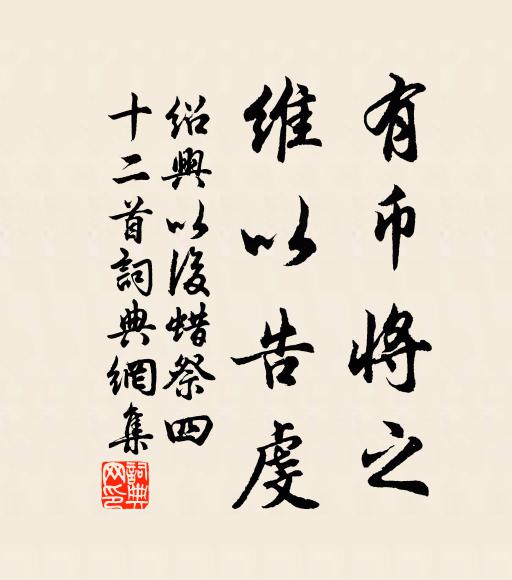 有币将之
維以告虔
紹興以後蜡祭四
十二首詞典網集
詞典
网印